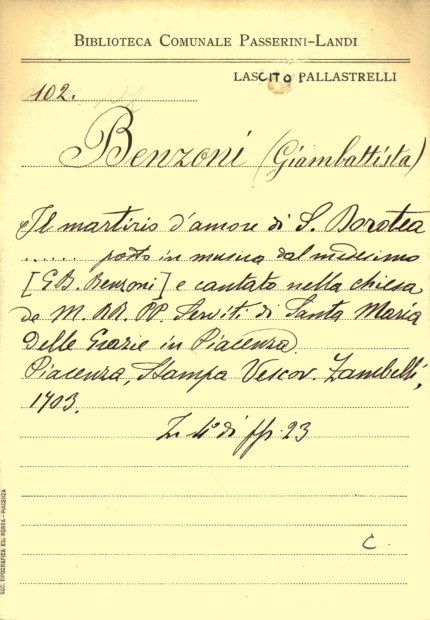 BIBLIOTECA COMUNALE PASSERINI-LANDI
LASCITO PALLASTRELLI
102.
Benzoni (Giambattista)
Il martirio d'amore di S. Dorotea
...... posto in musica dal medesimo
[G.B. Benzoni] e cantato nella chiesa
de M. RR. PP. Serviti di Santa Maria
Delle Grazie in Piacenza.
Piacenza, Stampa Vescov. Zambelli,
1703.
In 4° di pp. 23
C.
SOC. TIPOGRAFICA ED. PORTA - PIACENZA